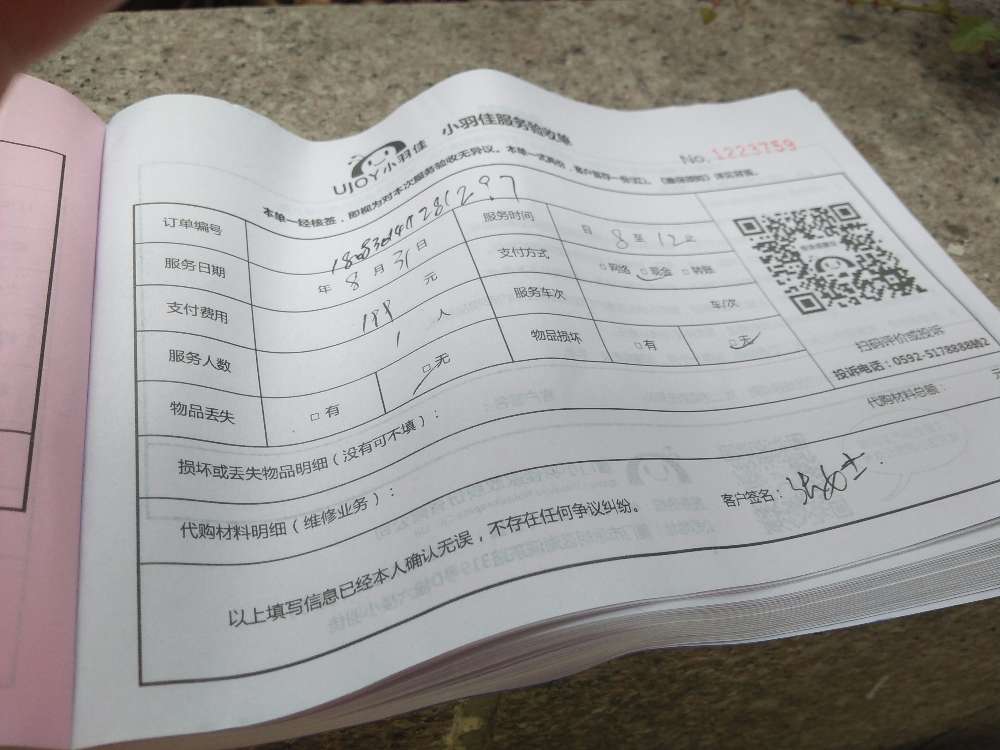 UJOY小羽佳 小羽佳服务验收单
No. 1223759
本单一经核签，即视为对本次服务验收无异议。本单一式两份，客户留存一份
订单编号
服务时间 8 至 12
服务日期 年 8 月 31 日
支付方式 □网络 □现金 □转账
支付费用 元
服务车次 车/次
服务人数 1 人
物品丢失 □有 □无
物品损坏 □有 □无
扫码评价或投诉
投诉电话：0592-5178888转2
损坏或丢失物品明细（没有可不填）：
代购材料明细（维修业务）：
代购材料总额： 元
以上填写信息已经本人确认无误，不存在任何争议纠纷。
客户签名：张女士